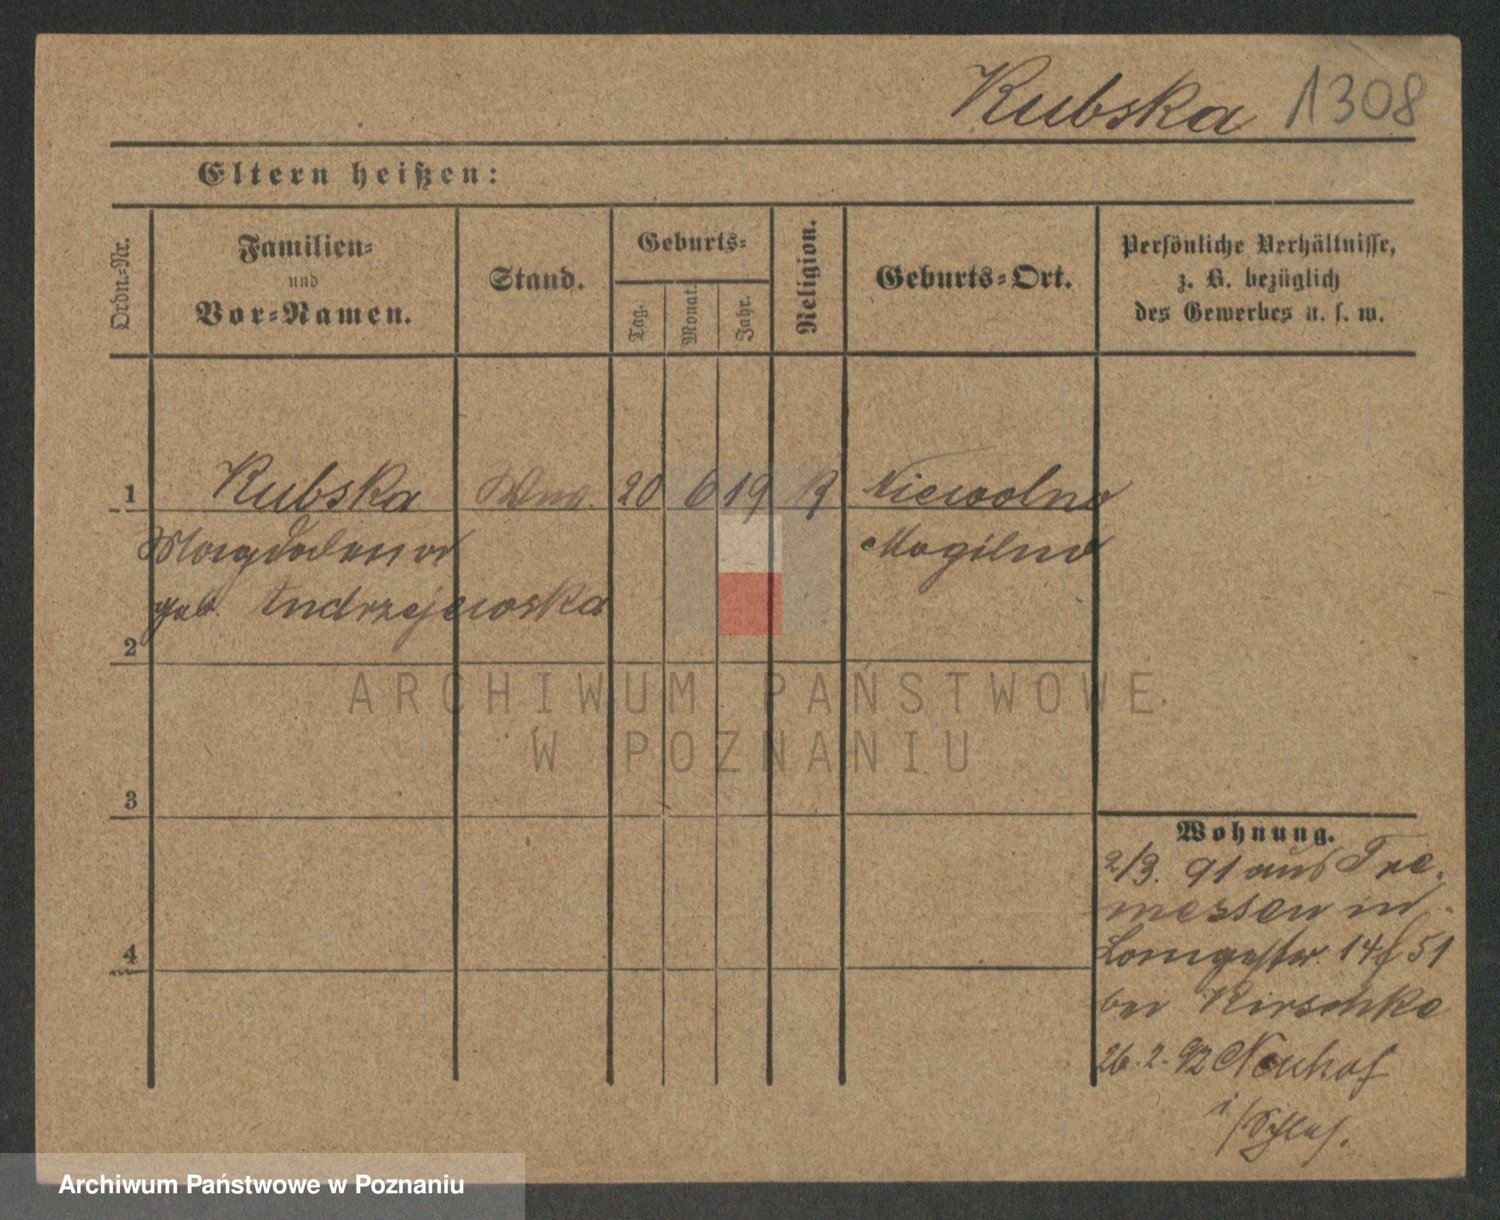 Kubska 1308
Eltern heißen:
Ordn.-Nr.
Familien-
und
Vor-Namen.
Stand.
Geburts-
Tag.
Monat.
Jahr.
Religion.
Geburts-Ort.
Persönliche Verhältnisse,
z. B. bezüglich
des Gewerbes u. s. w.
1 Kubska Wwe. 20 6 19 Niewolno
Magdalena Mogilno
geb. Andrzejewska
2
ARCHIWUM PAŃSTWOWE
W POZNANIU
3
Wohnung.
2/3. 91 aus Tre-
messen in
14 51
bei Kirschke
4
26.2.92 Neuhof
i/Schles.
Archiwum Państwowe w Poznaniu